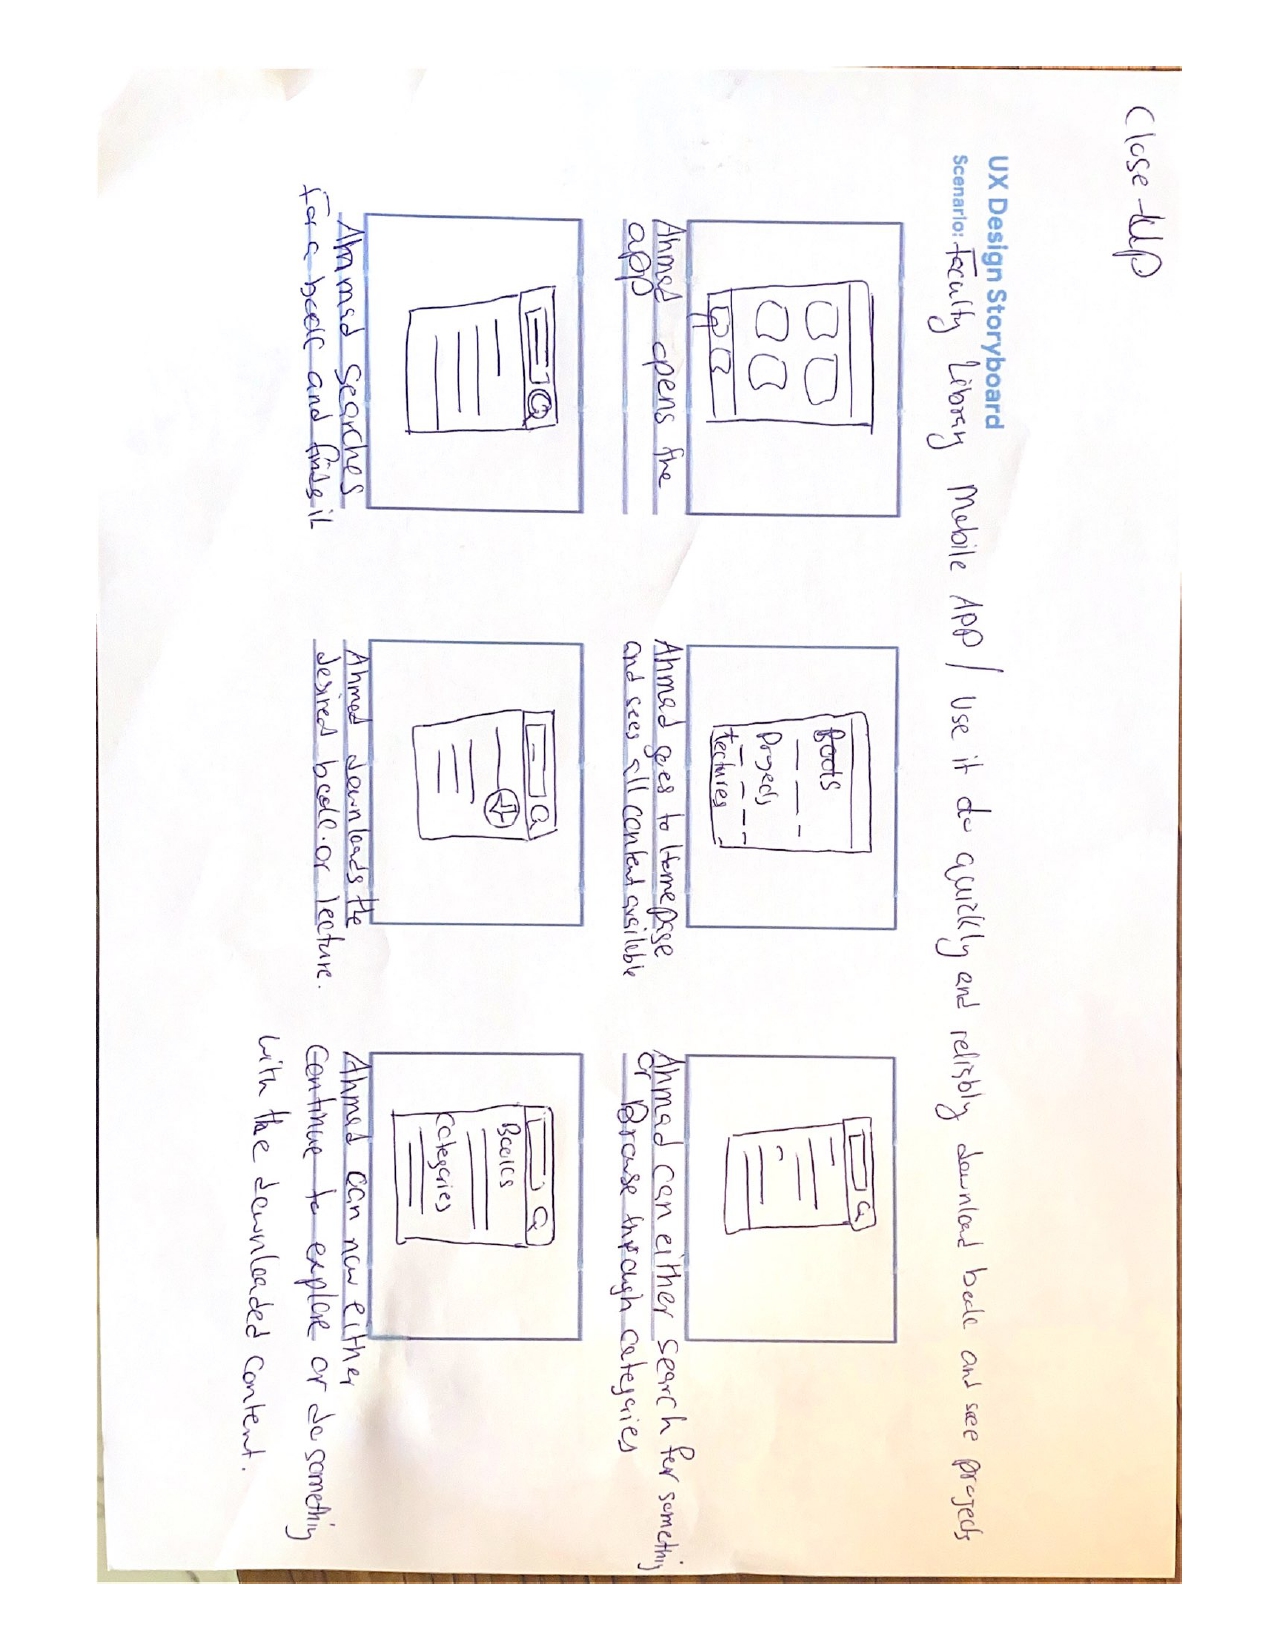 Close-Up
UX Design Storyboard
Scenario: Faculty Library Mobile APP / Use it to quickly and reliably download book and see projects
Books
Projects
Lectures
Ahmad opens the
app
Ahmad goes to Homepage
and sees all content available
Ahmad can either search for something
or Browse through categories
Ahmad searches
for a book and finds it
Ahmad downloads the
desired book or lecture.
Books
Categories
Ahmad can now either
continue to explore or do something
with the downloaded content.